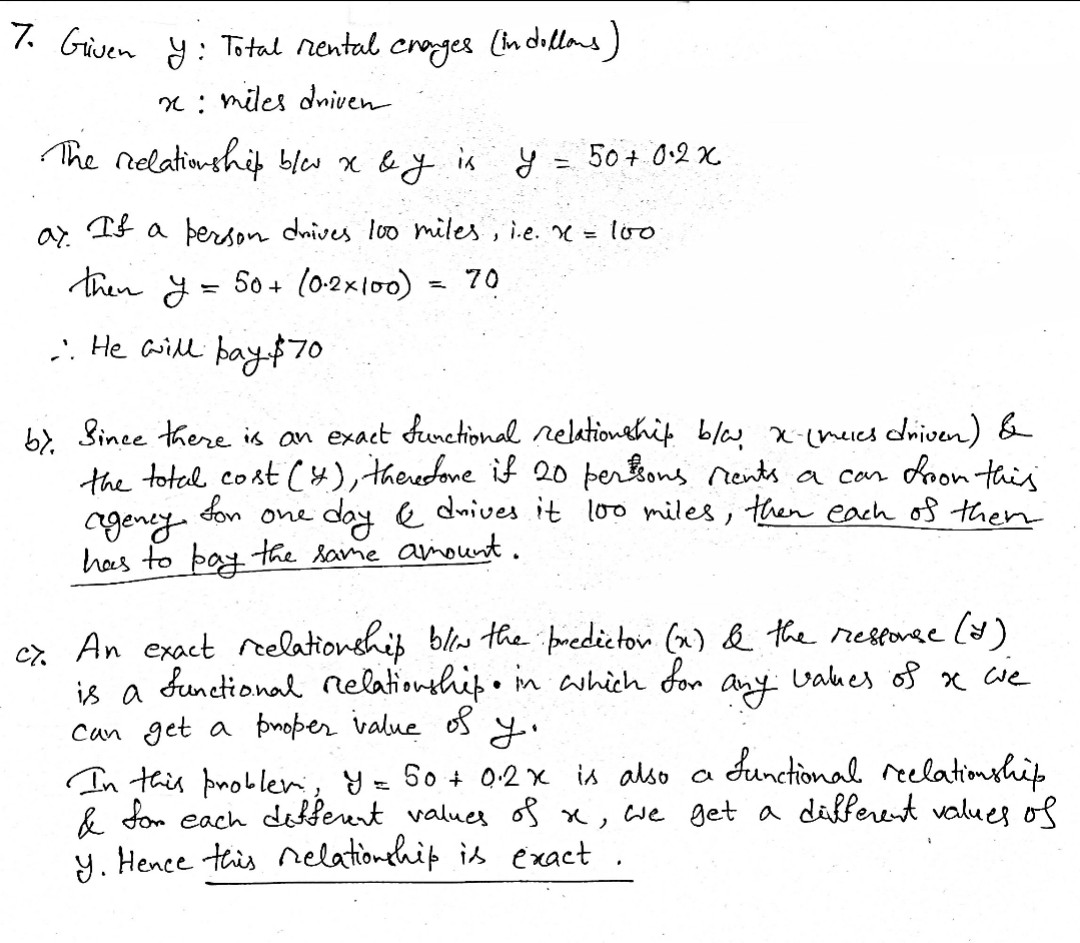 7. Given y : Total rental charges (in dollars)
x : miles driven
The relationship b/w x & y is y = 50 + 0.2 x
a). If a person drives 100 miles, i.e. x = 100
then y = 50 + (0.2×100) = 70
∴ He will pay $70
b). Since there is an exact functional relationship b/w x (miles driven) &
the total cost (y), therefore if 20 persons rents a car from this
agency for one day & drives it 100 miles, then each of them
has to pay the same amount.
c). An exact relationship b/w the predictor (x) & the response (y)
is a functional relationship. in which for any values of x we
can get a proper value of y.
In this problem, y = 50 + 0.2 x is also a functional relationship
& for each different values of x, we get a different values of
y. Hence this relationship is exact.